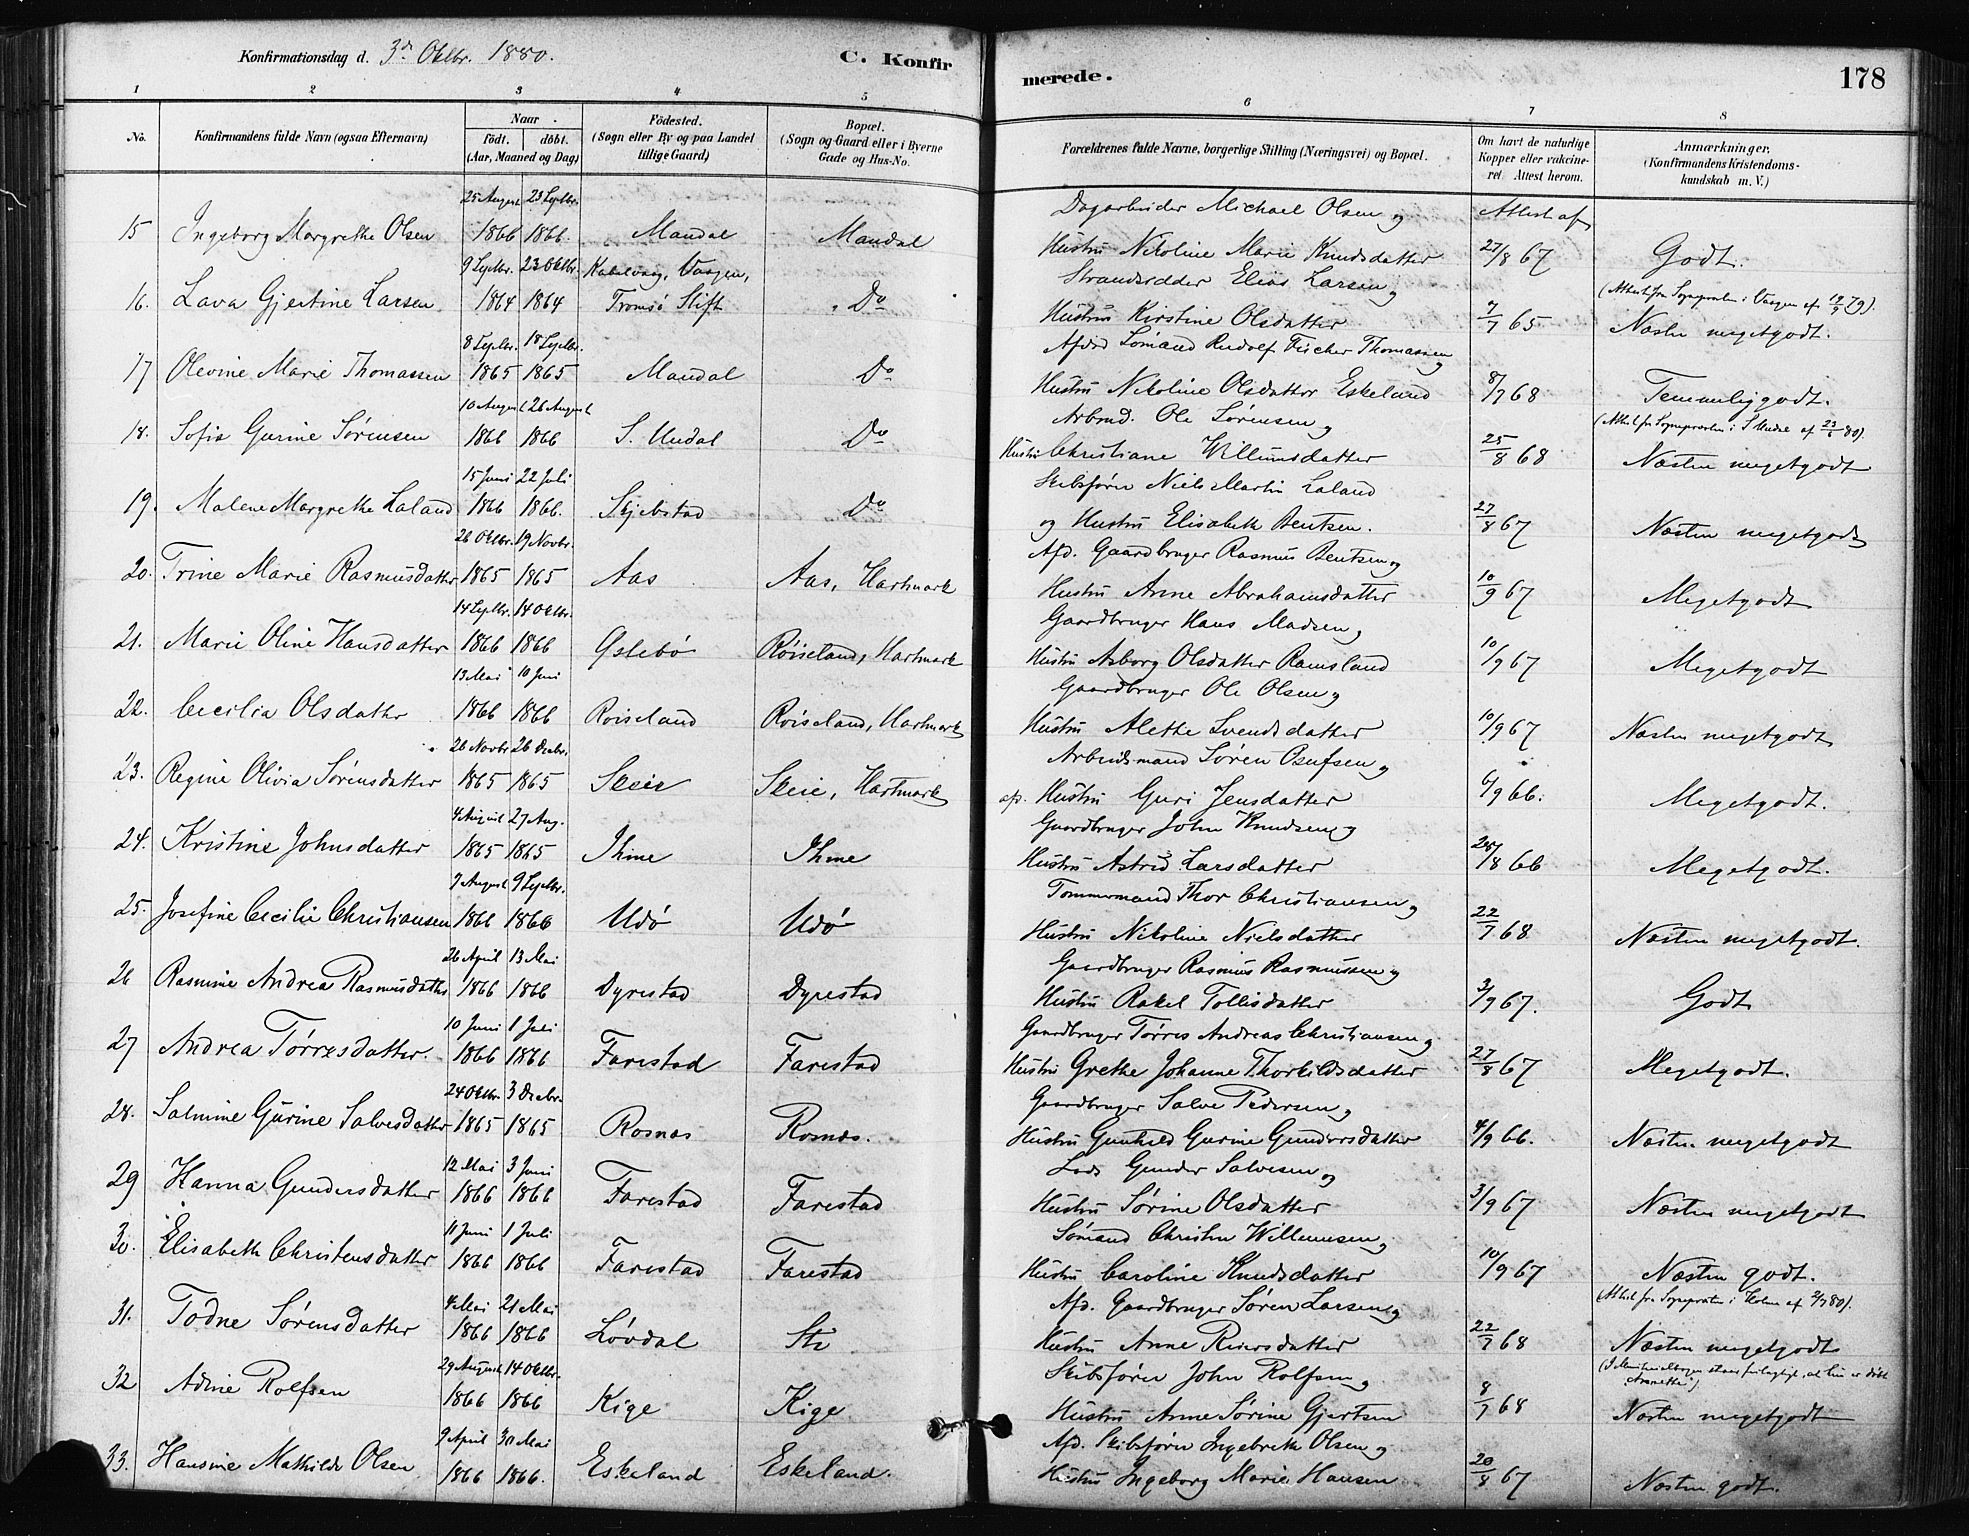 Konfirmationsdag d. 3de Oktbr. 1880.
C. Konfirmerede.
178
1 2 3 4 5 6 7 8
No.
Konfirmandens fulde Navn (ogsaa Efternavn)
Naar
födt. döbt.
(Aar, Maaned og Dag)
Födested.
(Sogn eller By og paa Landet tillige Gaard)
Bopæl.
(Sogn og Gaard eller i Byerne Gade og Hus-No.
Forældrenes fulde Navne, borgerlige Stilling (Næringsvei) og Bopæl.
Om havt de naturlige Kopper eller vakcineret. Attest herom.
Anmærkninger.
(Konfirmandens Kristendomskundskab m. V.)
25 August 23 Septbr. Dagarbeider Michael Olsen og Attest af
15 Ingeborg Margrethe Olsen 1866 1866. Mandal Mandal Hustru Nikoline Marie Knudsdatter 27/8 67 Godt.
9 Septbr. 23 Oktbr. Kabelvaag, Vaagen, Strandsidder Elias Larsen og (Attest fra Sognepresten i Vaagen af 19/9 79).
16. Lava Gjertine Larsen 1864 1864 Tromsö Stift Do Hustru Kirstine Olsdatter 7/7 65 Næsten megetgodt.
8 Septbr. 18 Septbr. Afdöd Sömand Rudolf Fischer Thomassen og
17 Olevine Marie Thomassen 1865 1865 Mandal Do Hustru Nikoline Olsdatter Eskeland 8/7 68 Temmelig godt.
10 August 26 August Arbmd. Ole Sörensen og (Attest fra Sognepresten i S. Undal af 23/6 80).
18. Sofie Gurine Sörensen 1866 1866 S. Undal Do Hustru Christiane Willumsdatter 25/8 68 Næsten megetgodt
15 Juni 22 Juli Skibsförer Niels Martin Laland
19. Malene Margrethe Laland 1866 1866. Skjebstad Do og Hustru Elisabeth Bentsen. 27/8 67 Næsten megetgodt
26 Oktbr. 19 Novbr. Afd. Gaardbruger Rasmus Bentsen og
20. Trine Marie Rasmusdatter 1865 1865 Aas Aas, Hartmark Hustru Anne Abrahamsdatter 10/9 67 Megetgodt
14 Septbr. 14 Oktbr. Gaardbruger Hans Madsen og
21. Marie Oline Hansdatter 1866 1866 Öslebö Röiseland, Hartmark Hustru Asborg Olsdatter Ramsland 10/9 67 Megetgodt
13 Mai 10 Juni Gaardbruger Ole Olsen og
22. Cecilia Olsdatter 1866 1866 Röiseland Röiseland, Hartmark Hustru Alette Svendsdatter 10/9 67 Næsten megetgodt
26 Novbr. 26 Decbr. Arbeidsmand Sören Osufsen og
23. Regine Olivia Sörensdatter 1865 1865 Skeie Skeie, Hartmark afd. Hustru Guri Jensdatter 6/9 66. Megetgodt.
4 August 27 Aug. Gaardbruger John Knudsen og
24. Kristine Johnsdatter 1865 1865 Ihme Ihme Hustru Astrid Larsdatter 28/8 66 Megetgodt.
7 August 9 Septbr. Tommermand Thor Christiansen og
25. Josefine Cecilie Christiansen 1866 1866 Udö Udö Hustru Nikoline Nielsdatter 22/7 68 Næsten megetgodt.
26 April 13 Mai Gaardbruger Rasmus Rasmussen og
26 Rasmine Andrea Rasmusdatter 1866 1866 Dyrestad Dyrestad Hustru Rakel Tollisdatter 3/9 67. Godt
10 Juni 1 Juli Gaardbruger Törres Andreas Christiansen og
27 Andrea Törresdatter. 1866 1866 Farestad Farestad Hustru Grethe Johanne Thorkildsdatter 27/8 67 Megetgodt.
24 Oktbr. 3 Decbr. Gaardbruger Salve Pedersen og
28. Salmine Gurine Salvesdatter 1865 1865 Rosnæs Rosnæs. Hustru Gunhild Gurine Gundersdatter 4/9 66. Næsten megetgodt
12 Mai 3 Juni Lods Gunder Salvesen og
29 Hanna Gundersdatter 1866 1866 Farestad Farestad Hustru Sörine Olsdatter 3/9 67 Næsten megetgodt
11 Juni 1 Juli Sömand Christen Willumsen og
30. Elisabeth Christensdatter 1866 1866 Farestad Farestad Hustru Caroline Knudsdatter 10/9 67 Næsten godt.
4 Mai 21 Mai Afd. Gaardbruger Sören Larsen og (Attest fra Sognepresten i Holme af 2/7 80).
31. Todne Sörensdatter 1866 1866 Lövdal Sti Hustru Anne Reiersdatter 22/7 68 Næsten megetgodt
29 August 14 Oktbr. Skibsförer John Rolfsen og
32 Adine Rolfsen 1866 1866 Kige Kige Hustru Anne Sörine Gjertsen 8/7 68 Næsten megetgodt
9 April 30 Mai Afd. Skibsförer Ingebreth Olsen og
33. Hansine Mathilde Olsen 1866 1866. Eskeland Eskeland. Hustru Ingeborg Marie Hansen 20/8 67 Næsten godt.